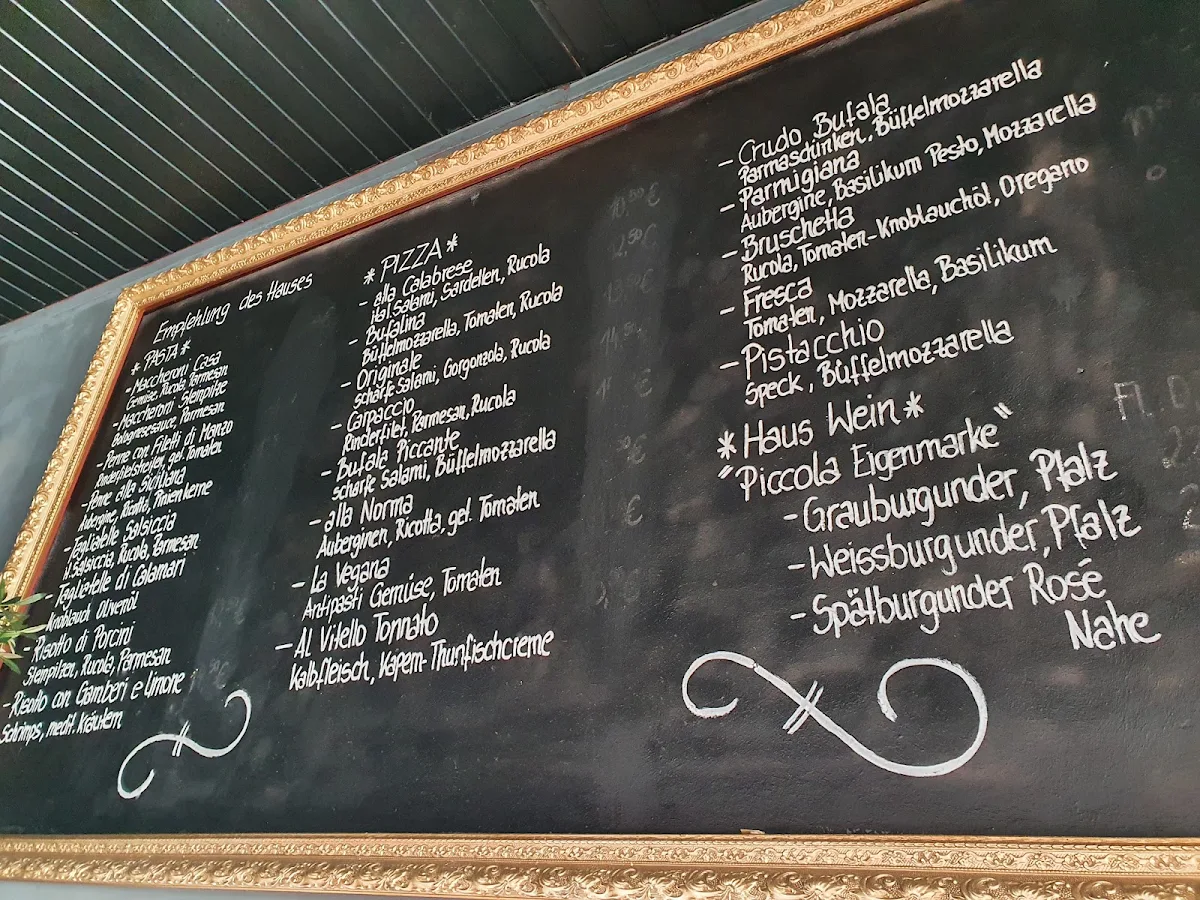 Empfehlung des Hauses
*PASTA*
- Maccheroni Casa
Gemüse, Rucola, Parmesan
- Maccheroni Steinpilze
Bolognesesauce, Parmesan
- Penne con Filetti di Manzo
Rinderfiletstreifen, get. Tomaten
- Penne alla Siciliana
Aubergine, Ricotta, Pinienkerne
- Tagliatelle Salsiccia
it. Salsiccia, Rucola, Parmesan
- Tagliatelle di Calamari
Knoblauch Olivenöl
- Risotto di Porcini
Steinpilzen, Rucola, Parmesan
- Risotto con Gamberi e limone
Schrimps, medit. Kräutern
*PIZZA*
- alla Calabrese
ital. Salami, Sardellen, Rucola
- Bufalina
Büffelmozzarella, Tomaten, Rucola
- Originale
scharfe Salami, Gorgonzola, Rucola
- Carpaccio
Rinderfilet, Parmesan, Rucola
- Bufala Piccante
scharfe Salami, Büffelmozzarella
- alla Norma
Auberginen, Ricotta, get. Tomaten
- La Vegana
Antipasti Gemüse, Tomaten
- Al Vitello Tonnato
Kalbfleisch, Kapern-Thunfischcreme
- Crudo Bufala
Parmaschinken, Büffelmozzarella
- Parmigiana
Aubergine, Basilikum Pesto, Mozzarella
- Bruschetta
Rucola, Tomaten-Knoblauchöl, Oregano
- Fresca
Tomaten, Mozzarella, Basilikum
- Pistacchio
Speck, Büffelmozzarella
*Haus Wein*
"Piccola Eigenmarke"
- Grauburgunder, Pfalz
- Weissburgunder, Pfalz
- Spätburgunder Rosé
Nahe